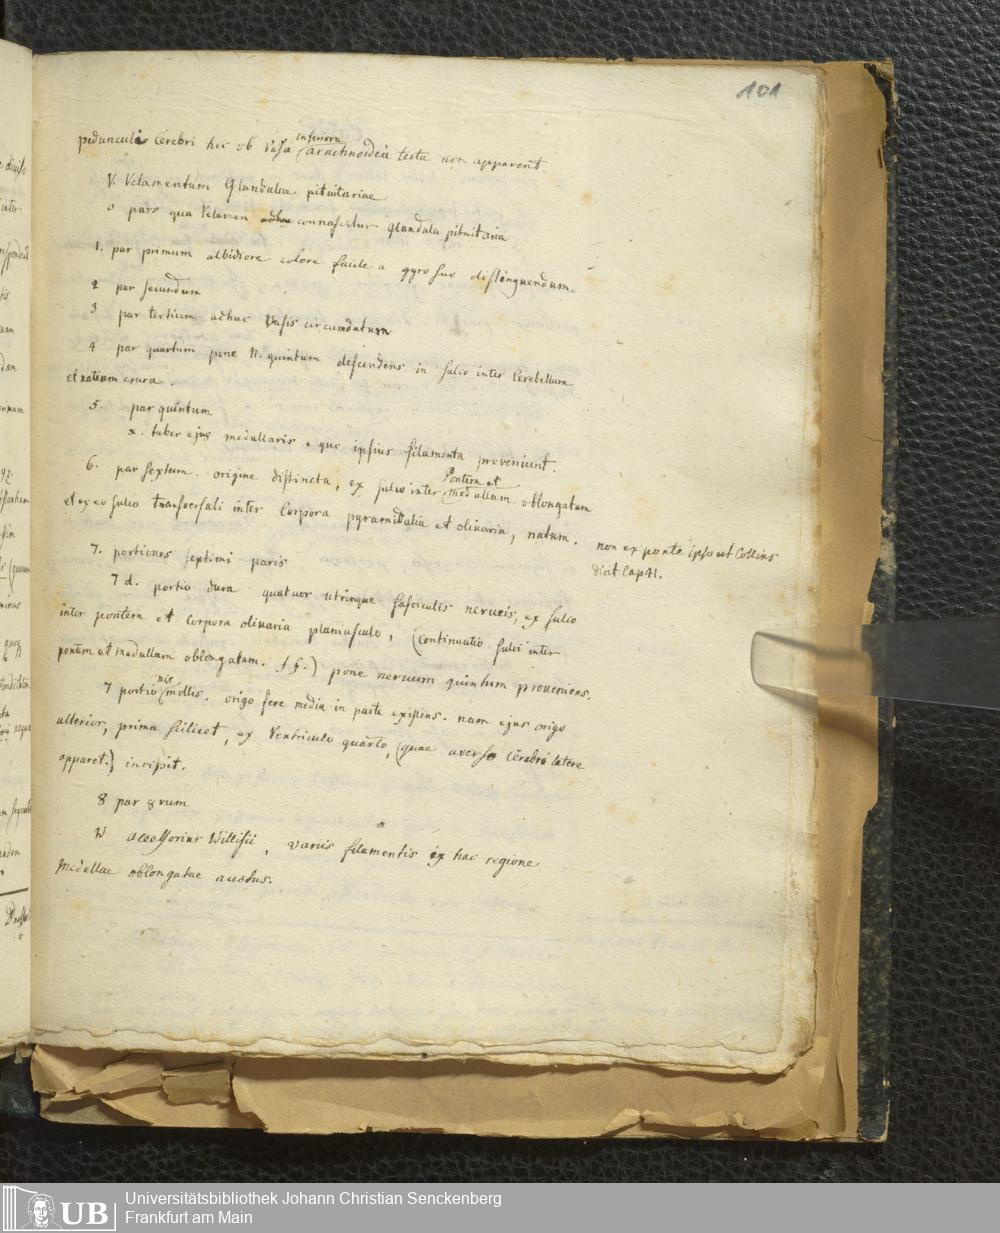 101
pedunculi Cerebri hic ob vasa inferiora arachnoidea tecta non apparent.
V. Velamentum Glandulae pituitariae
o pars qua Velamen connascitur glandula pituitaria
1. par primum albidiore colore facile a gyro suo distinguendum.
2 par secundum
3 par tertium adhuc Vasis circumdatum
4 par quartum pone N. quintum descendens in sulco inter Cerebellum
et natium crura.
5. par quintum
x. tuber ejus medullaris e quo ipsius filamenta proveniunt.
6. par sextum. origine distincta, ex sulco inter Pontem et medullam oblongatam
et ex eo sulco transversali inter Corpora pyramidalia et olivaria, natum.
non ex ponte ipso ut Collins
dicit Cap 41.
7. portiones septimi paris
7 d. portio dura quatuor utrinque fasciculis nerveis, ex sulco
inter pontem et Corpora olivaria planiusculo, (continuatio sulci inter
pontem et medullam oblongatam. f f.) pone nervum quintum proveniens.
7 portionis mollis. origo fere media in parte existens. nam ejus origo
ulterior, prima scilicet, ex Ventriculo quarto, (quae averso Cerebri latere
apparet.) incipit.
8 par 8vum
W accessorius Willisii, variis filamentis ex hac regione
Medullae oblongatae auctus.
UB
Universitätsbibliothek Johann Christian Senckenberg
Frankfurt am Main